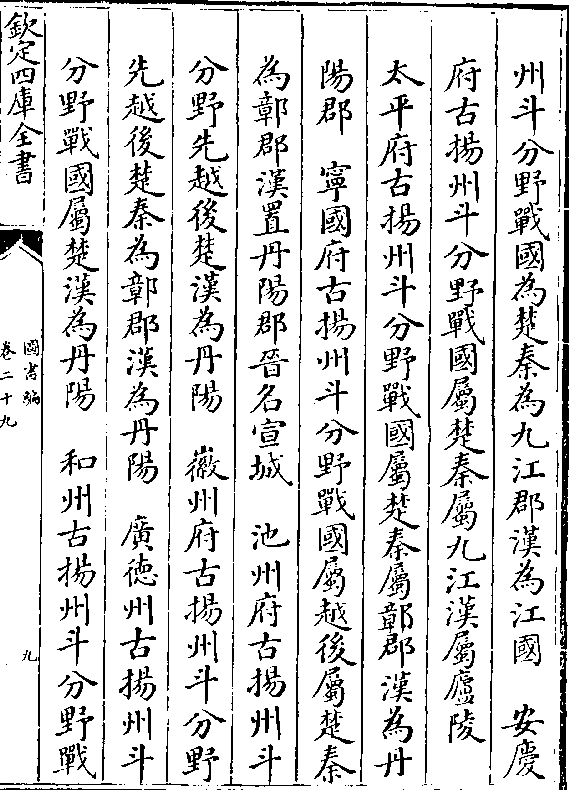 州斗分野戰國為楚秦為九江郡漢為江國　安慶
府古揚州斗分野戰國屬楚秦屬九江漢屬廬陵
太平府古揚州斗分野戰國屬楚秦屬鄣郡漢為丹
陽郡　寧國府古揚州斗分野戰國屬越後屬楚秦
為鄣郡漢置丹陽郡晉名宣城　池州府古揚州斗
分野先越後楚漢為丹陽　徽州府古揚州斗分野
先越後楚秦為鄣郡漢為丹陽　廣德州古揚州斗
分野戰國屬楚漢為丹陽　和州古揚州斗分野戰
欽定四庫全書
圖書編
卷二十九
九